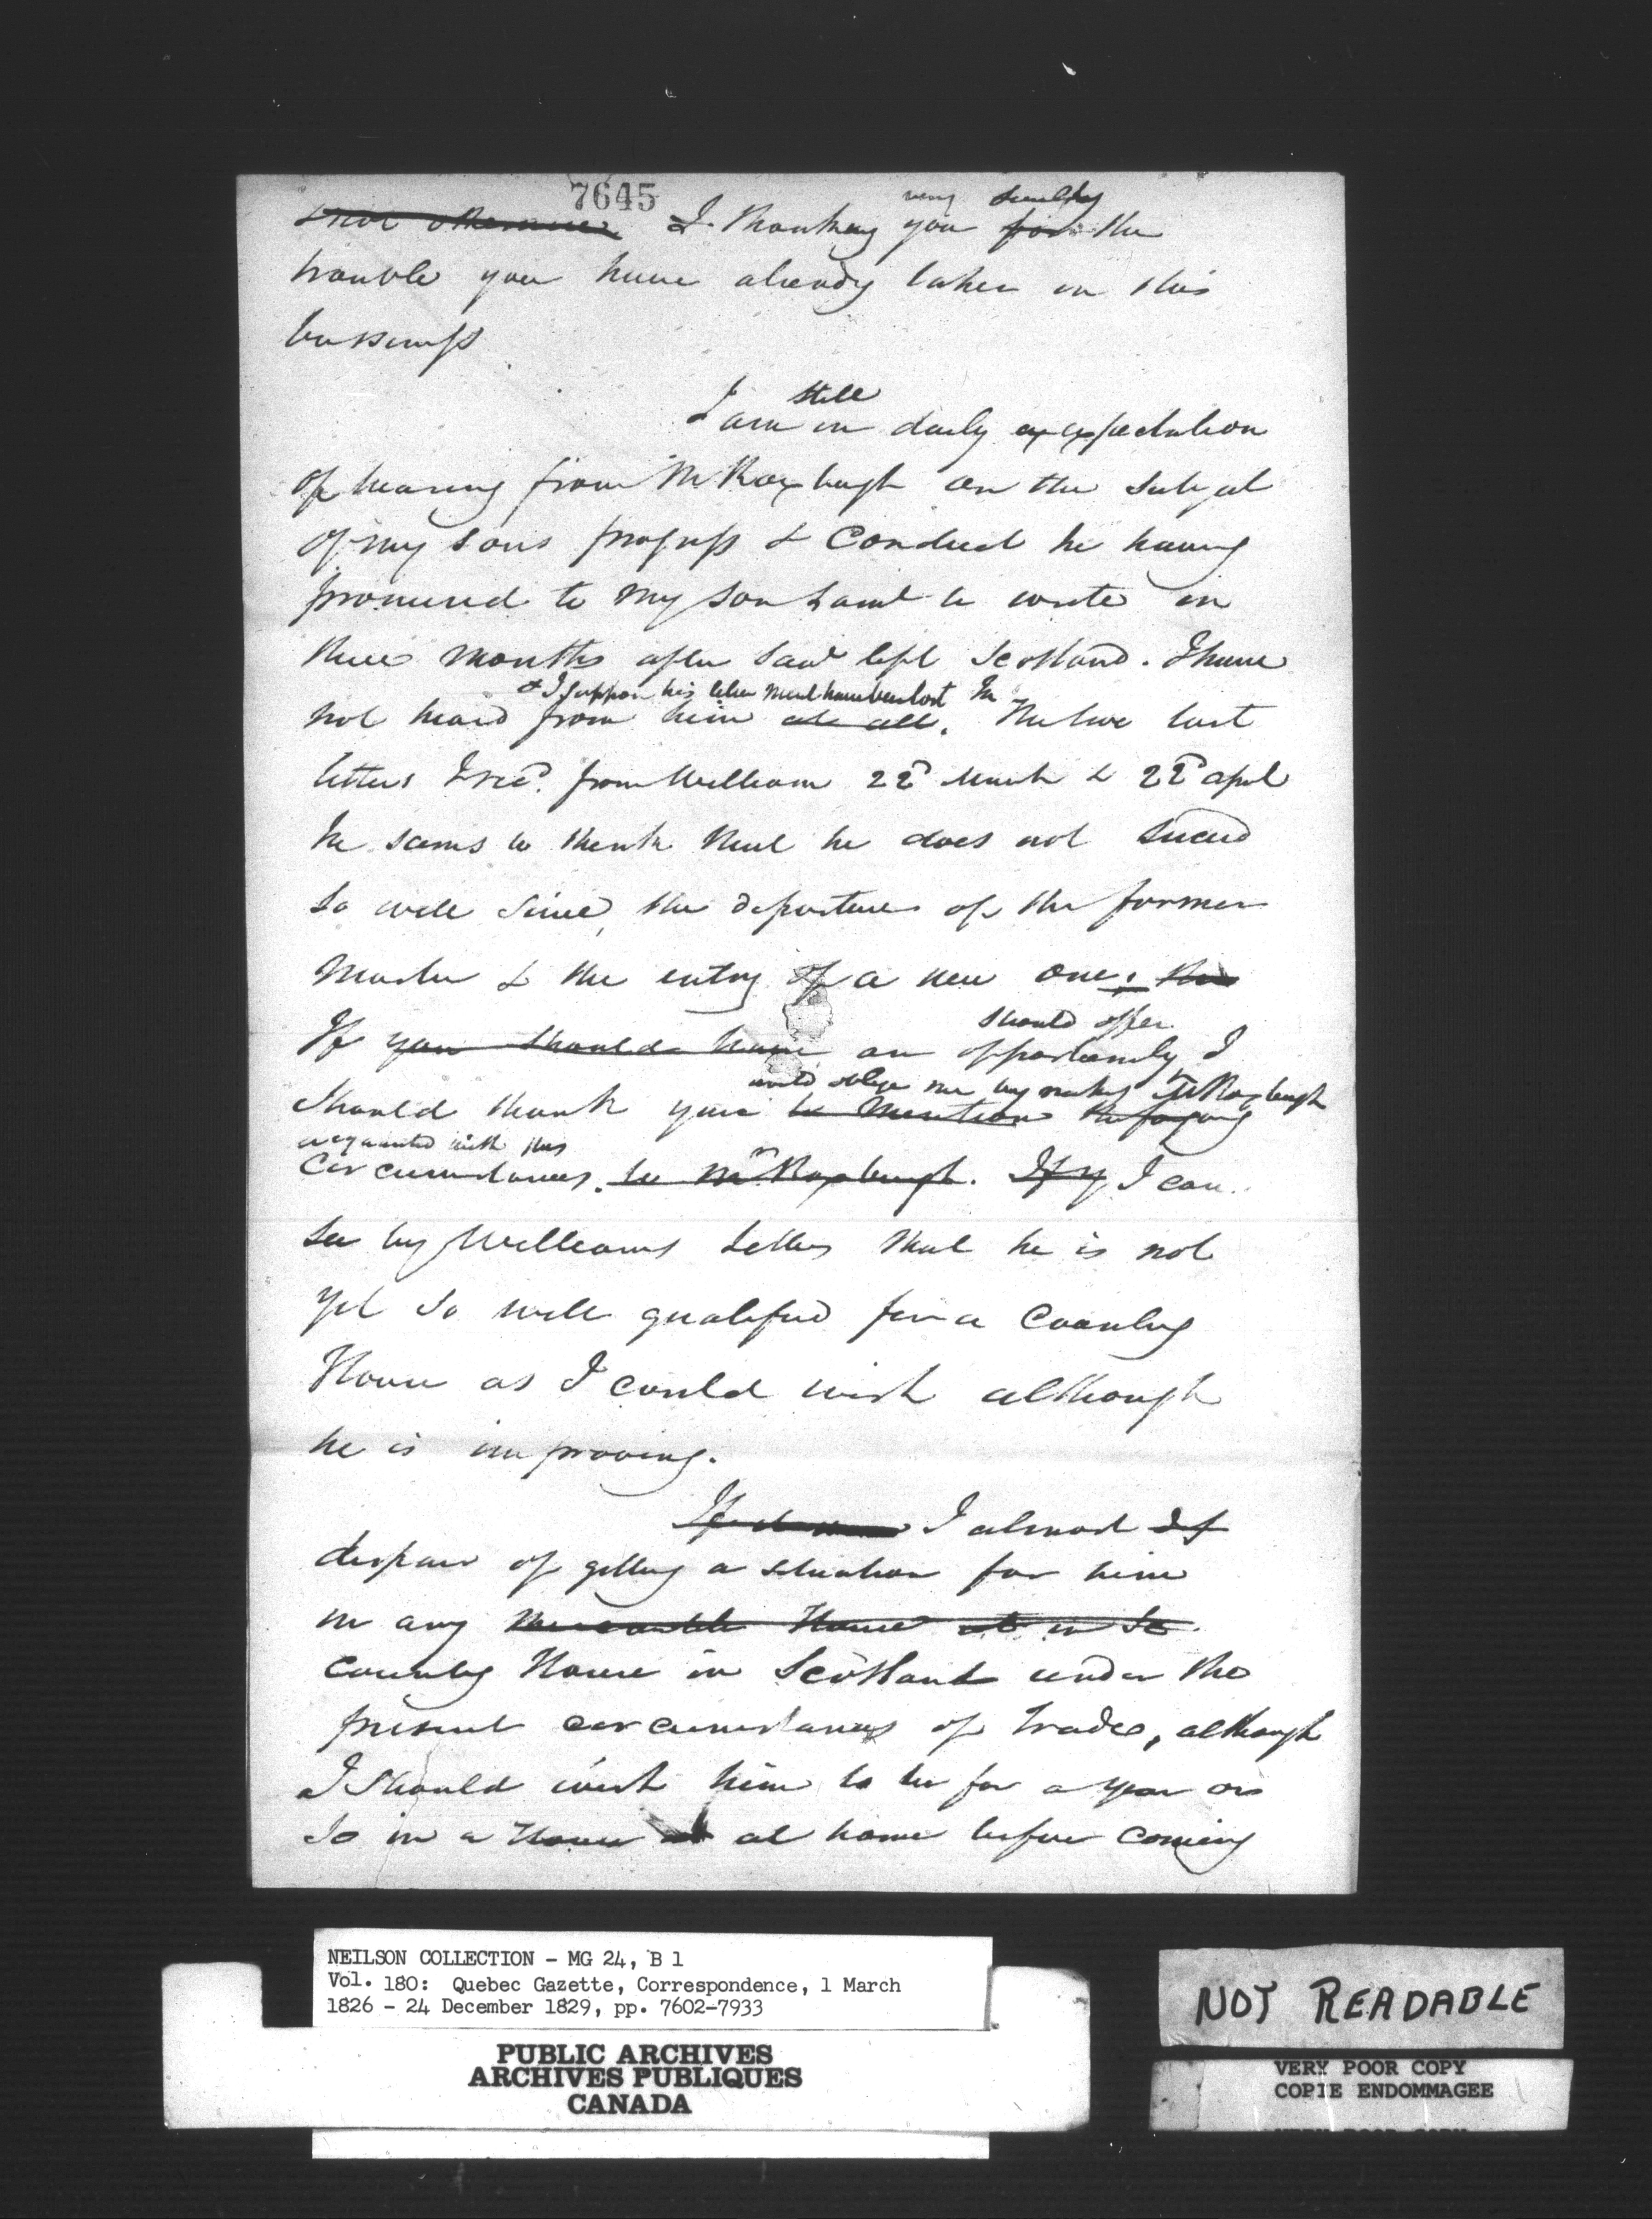 7645
very
I thank you for the
trouble you have already taken in this
bussiness
still
I am in daily expectation
of hearing from Mr Roxburgh on the subject
of my sons progress & Conduct he having
promised to my son Saml to write in
three months after Saml left Scotland. I have
& I suppose his letter must have been lost In
not heard from him at all. The two last
letters I recd. from William 22d March & 22d April
he seems to think that he does not succeed
so well since the departure of the former
Master & the entry of a new one. the
should offer
If you should have an opportunity I
would oblige me by making Mr Roxburgh
should thank you to mention the forgoing
acquainted with this
circumstances. to Mr Roxburgh. If y I can
see by Williams Letters that he is not
yet so well qualified for a Counting
House as I could wish although
he is improving.
I almost
despair of getting a situation for him
in any Mercantile House at in Sc
counting House in Scotland under the
present circumstances of trade, although
I should wish him to be for a year or
so in a House at home before coming
NEILSON COLLECTION - MG 24, B 1
Vol. 180: Quebec Gazette, Correspondence, 1 March
1826 - 24 December 1829, pp. 7602-7933
PUBLIC ARCHIVES
ARCHIVES PUBLIQUES
CANADA
NOT READABLE
VERY POOR COPY
COPIE ENDOMMAGEE